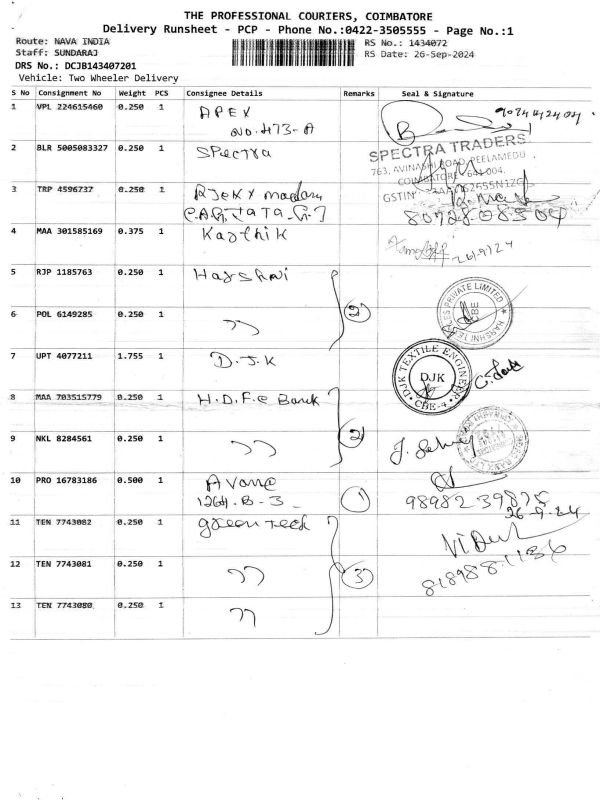 THE PROFESSIONAL COURIERS, COIMBATORE
Delivery Runsheet - PCP - Phone No.:0422-3505555 - Page No.:1
Route: NAVA INDIA RS No.: 1434072
Staff: SUNDARAJ RS Date: 26-Sep-2024
DRS No.: DCJB143407201
Vehicle: Two Wheeler Delivery
S No Consignment No Weight PCS Consignee Details Remarks Seal & Signature
1 VPL 224615460 0.250 1 APEX
NO.473-A
2 BLR 5005083327 0.250 1 Spectra
SPECTRA TRADERS
763, AVINASHI ROAD, PEELAMEDU
COIMBATORE - 641 004.
GSTIN
3 TRP 4596737 0.250 1 madam
8072808504
4 MAA 301585169 0.375 1 Karthik 26/9/24
5 RJP 1185763 0.250 1 Harshni
2
PRIVATE LIMITED
6 POL 6149285 0.250 1 ,,
7 UPT 4077211 1.755 1 D.J.K
DJK TEXTILE ENGINEER
DJK
CBE-4
8 MAA 703515779 0.250 1 H.D.F.C Bank
2
9 NKL 8284561 0.250 1 ,,
10 PRO 16783186 0.500 1
1264.B-3
1
98982 39875
26-9-24
11 TEN 7743082 0.250 1 green teck
12 TEN 7743081 0.250 1 ,, 3
8189881136
13 TEN 7743080 0.250 1 ,,